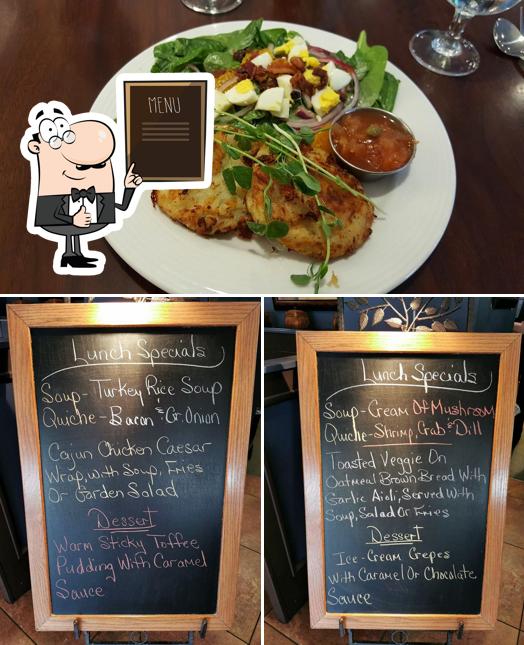 MENU
Lunch Specials
Soup-Turkey Rice Soup
Quiche-Bacon & Gr.Onion
Cajun Chicken Caesar
Wrap, with Soup, Fries
Or Garden Salad
Dessert
Warm Sticky Toffee
Pudding With Caramel
Sauce
Lunch Specials
Soup-Cream Of Mushroom
Quiche-Shrimp, Crab & Dill
Toasted Veggie On
Oatmeal Brown Bread With
Garlic Aioli, Served With
Soup, Salad Or Fries
Dessert
Ice-Cream Crepes
With Caramel Or Chocolate
Sauce